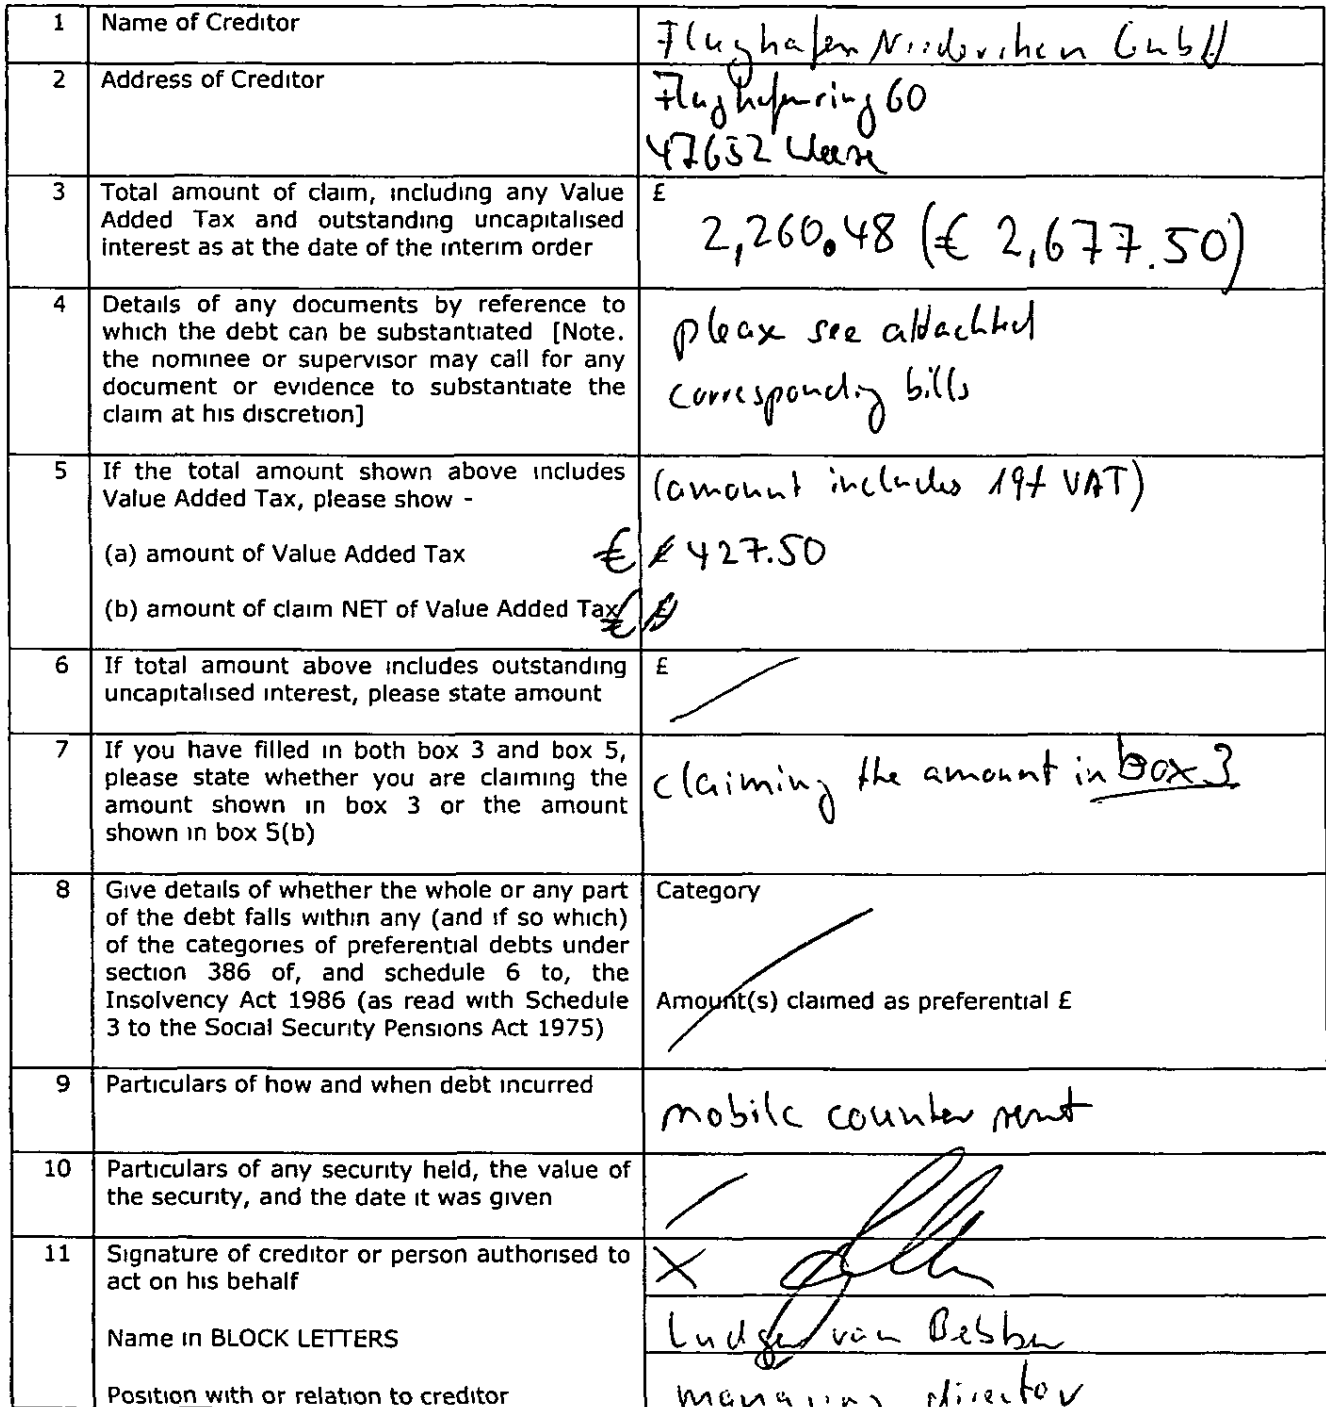 1 Name of Creditor
Flughafen Niederrhein GmbH
2 Address of Creditor
Flughafenring 60
47652 Weeze
3 Total amount of claim, including any Value
Added Tax and outstanding uncapitalised
interest as at the date of the interim order
£
2,260.48 (€ 2,677.50)
4 Details of any documents by reference to
which the debt can be substantiated [Note.
the nominee or supervisor may call for any
document or evidence to substantiate the
claim at his discretion]
please see attachted
corresponding bills
5 If the total amount shown above includes
Value Added Tax, please show -
(amount includes 19% VAT)
(a) amount of Value Added Tax € £ 427.50
(b) amount of claim NET of Value Added Tax € £
6 If total amount above includes outstanding
uncapitalised interest, please state amount
£
7 If you have filled in both box 3 and box 5,
please state whether you are claiming the
amount shown in box 3 or the amount
shown in box 5(b)
claiming the amount in box 3
8 Give details of whether the whole or any part
of the debt falls within any (and if so which)
of the categories of preferential debts under
section 386 of, and schedule 6 to, the
Insolvency Act 1986 (as read with Schedule
3 to the Social Security Pensions Act 1975)
Category
Amount(s) claimed as preferential £
9 Particulars of how and when debt incurred
mobile counter rent
10 Particulars of any security held, the value of
the security, and the date it was given
11 Signature of creditor or person authorised to
act on his behalf
X
Name in BLOCK LETTERS
Ludger van Bebber
Position with or relation to creditor
managing director